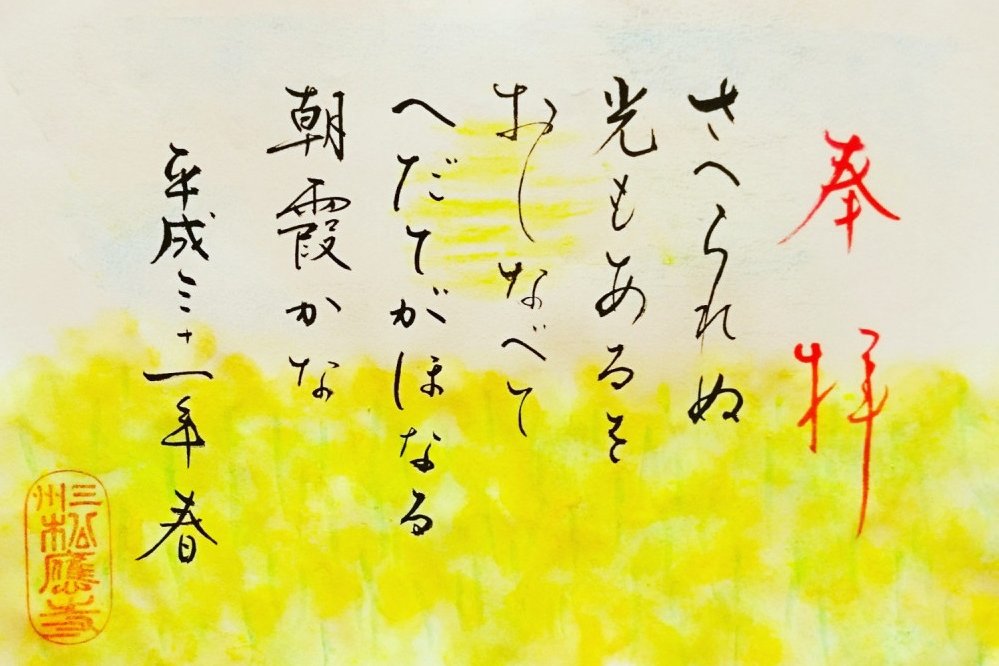 奉拝
さへられぬ
光もあるを
おしなべて
へだてがほなる
朝霞かな
平成三十一年春
三州松應寺